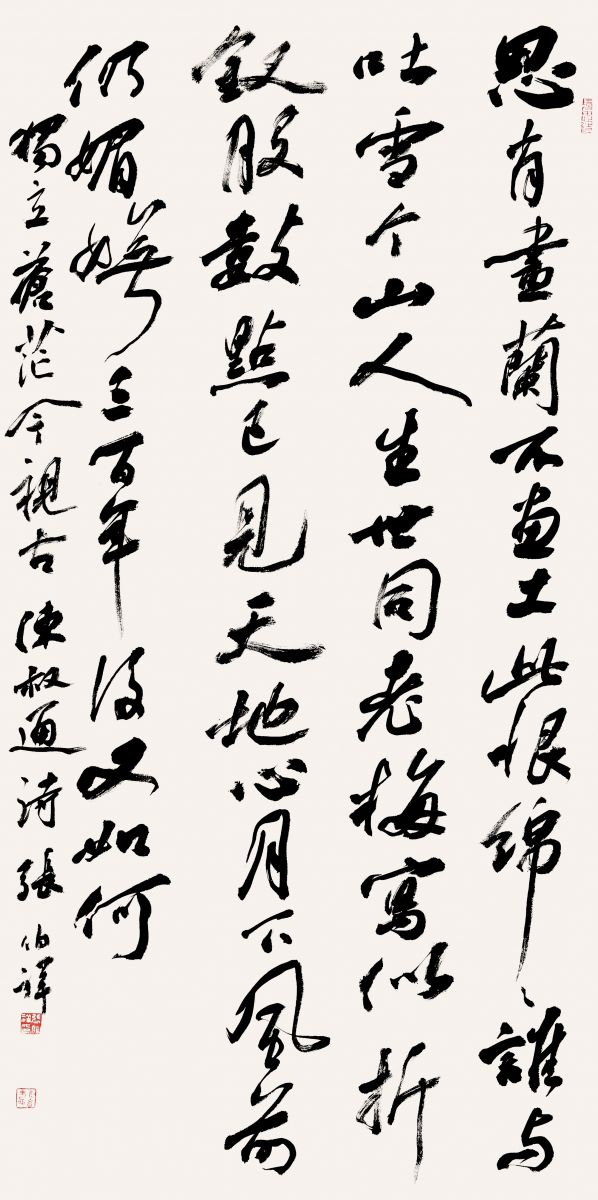 思肖畫蘭不画土此恨綿々誰与
吐雪个山人生世同老梅寫似折
釵股鼓點已見天地心月下風前
仍媚嫵三百年後又如何
獨立蒼茫今視古 陳叔通詩 張伯祥